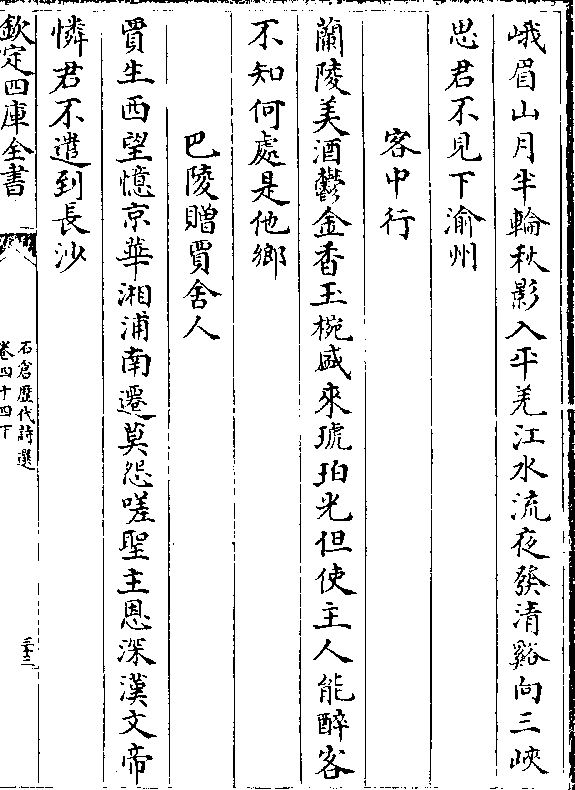 峨眉山月半輪秋影入平羌江水流夜發清谿向三峽
思君不見下渝州
客中行
蘭陵美酒鬱金香玉椀盛來琥珀光但使主人能醉客
不知何處是他鄉
巴陵贈賈舍人
賈生西望憶京華湘浦南遷莫怨嗟聖主恩深漢文帝
憐君不遣到長沙
欽定四庫全書
石倉歷代詩選
卷四十四下